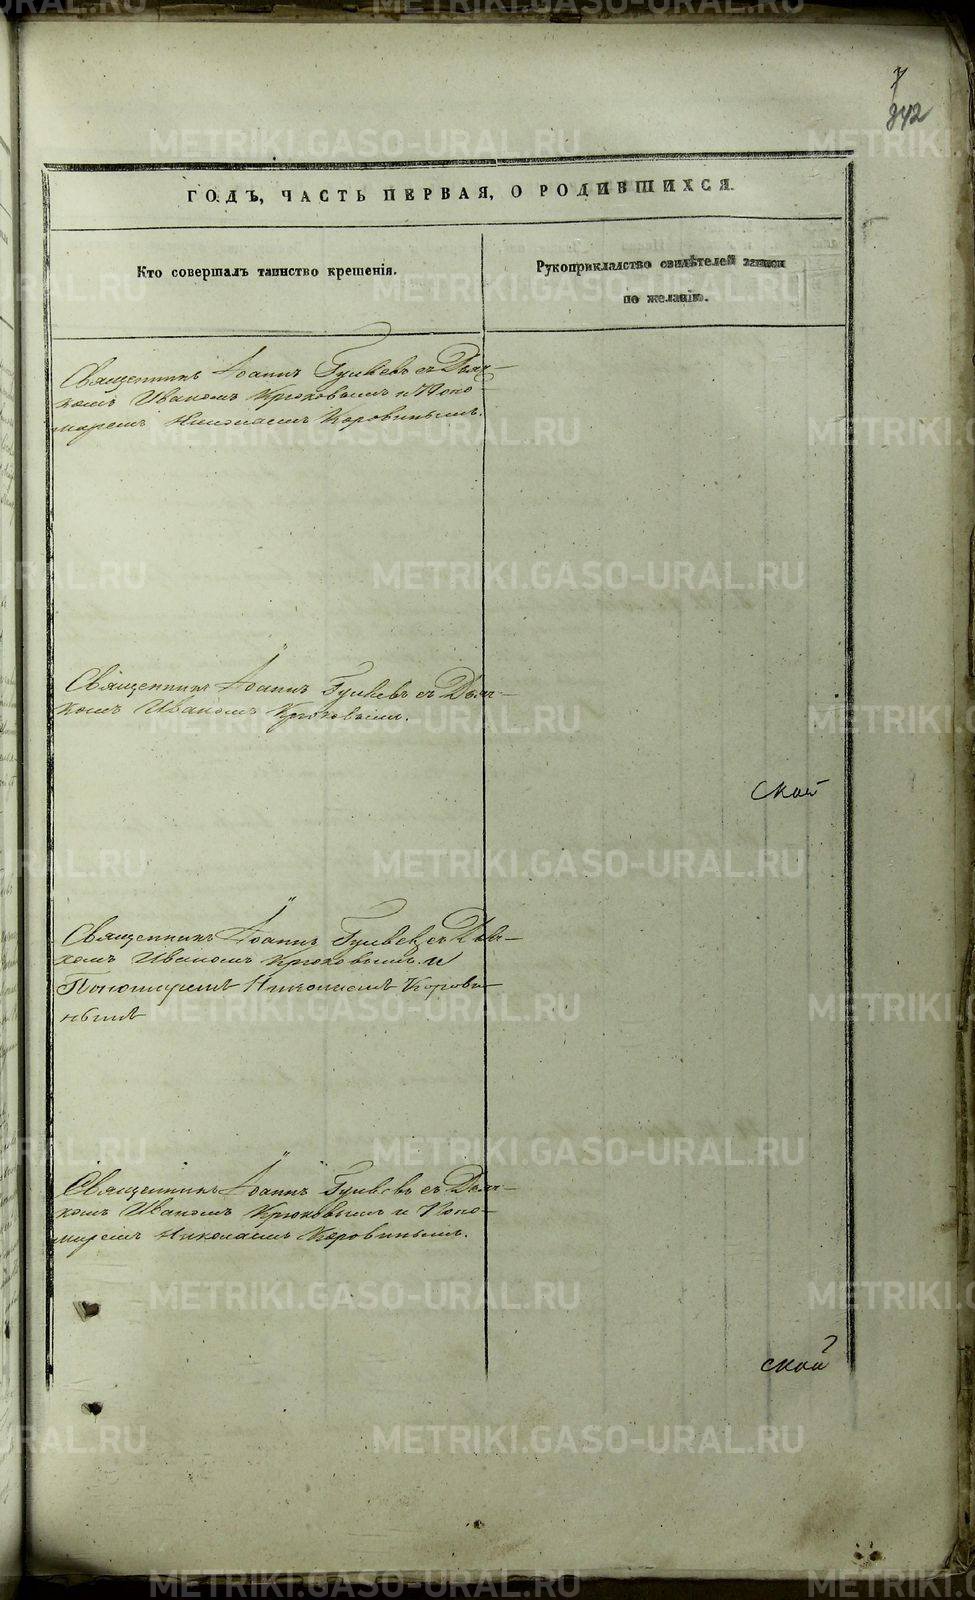 7
342
ГОДЪ, ЧАСТЬ ПЕРВАЯ, О РОДИВШИХСЯ.
Кто совершалъ таинство крещенія.
Рукоприкладство свидѣтелей записи
по желанію.
Священникъ Іоаннъ Гуляевъ съ Дьяч-
комъ Иваномъ Крюковымъ и Поно-
маремъ Николаемъ Коровинымъ.
Священникъ Іоаннъ Гуляевъ съ Дьяч-
комъ Иваномъ Крюковымъ.
ской
Священникъ Іоаннъ Гуляевъ съ Дьяч-
комъ Иваномъ Крюковымъ и
Пономаремъ Николаемъ Корови-
нымъ
Священникъ Іоаннъ Гуляевъ съ Дьяч-
комъ Иваномъ Крюковымъ и Поно-
маремъ Николаемъ Коровинымъ.
ской
METRIKI.GASO-URAL.RU